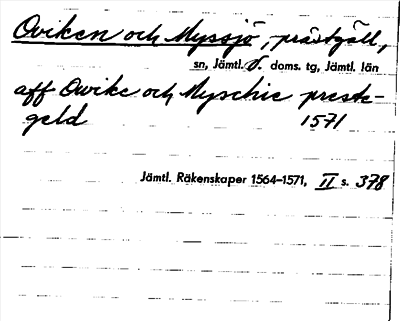 Oviken och Myssjö, prästgäll,
sn, Jämtl. S. doms. tg, Jämtl. län
aff Owike och Myschie preste-
geld 1571
Jämtl. Räkenskaper 1564–1571, II s. 378